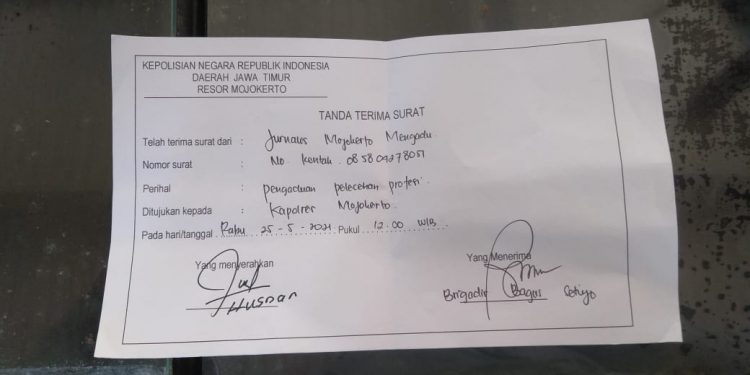 KEPOLISIAN NEGARA REPUBLIK INDONESIA
DAERAH JAWA TIMUR
RESOR MOJOKERTO
TANDA TERIMA SURAT
Telah terima surat dari : Jurnalis Mojokerto Mengadu
Nomor surat : No. Kontak. 085809278051
Perihal : pengaduan pelecehan profesi.
Ditujukan kepada : Kapolres Mojokerto.
Pada hari/tanggal Rabu, 25-5-2021 Pukul 12.00 WIB
Yang menyerahkan Yang Menerima
Husnan Brigadir Bagus Setiyo